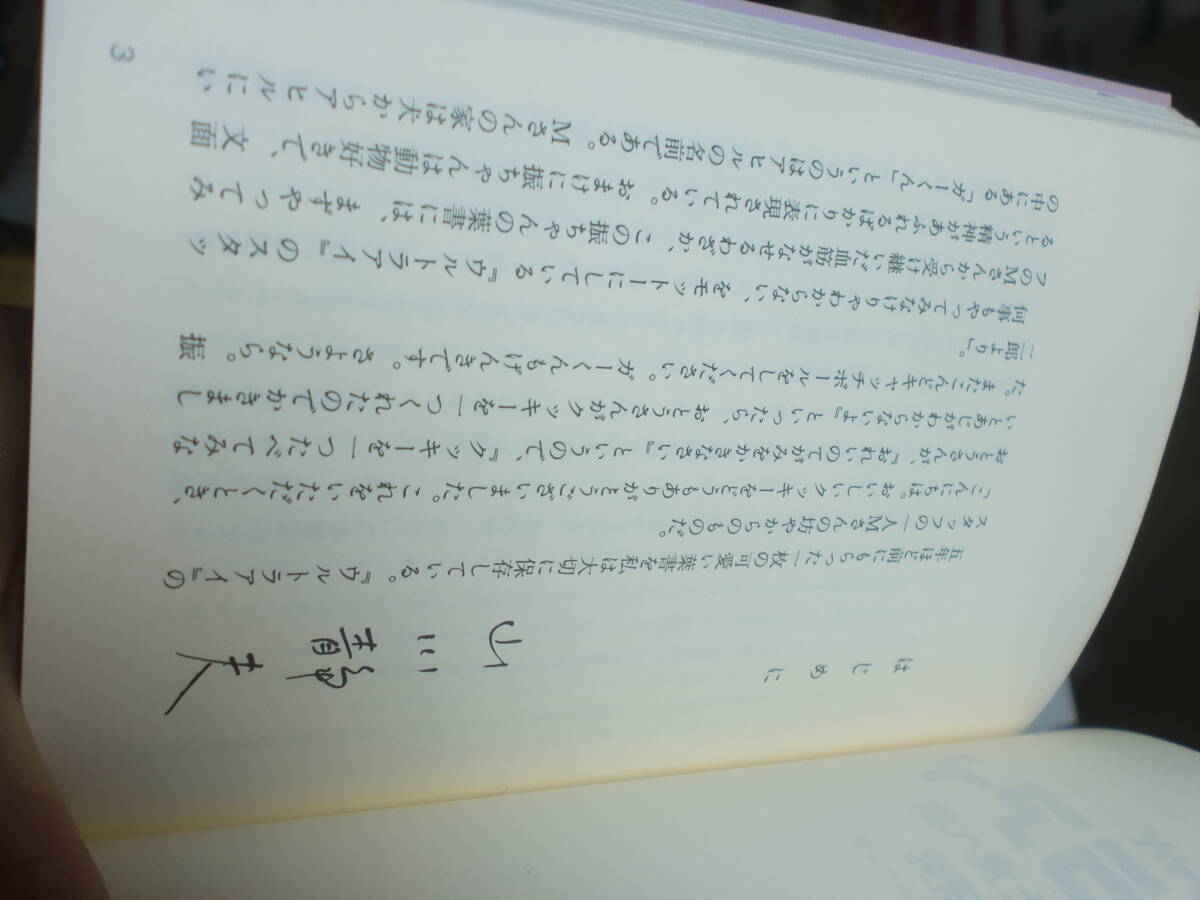 はじめに
山川静夫
五年ほど前にもらった一枚の可愛い葉書を私は大切に保存している。『ウルトラアイ』の
スタッフの一人Mさんの坊やからのものだ。
「こんにちは。おいしいクッキーをどうもありがとうございました。これをいただくとき、
おとうさんが、『おれいのてがみをかきなさい』というので、『クッキーを一つたべてみな
いとあじがわからないよ』といったら、おとうさんがクッキーを一つくれたのでかきまし
た。またこんどキャッチボールをしてください。ガーくんもげんきです。さようなら。振
一郎より」。
何事もやってみなけりゃわからない、をモットーにしている『ウルトラアイ』のスタッ
フのMさんから受け継いだ血筋がなせるわざか、この振ちゃんの葉書には、まずやってみ
るという精神があふれるばかりに表現されている。おまけに振ちゃんは動物好きで、文面
の中にある「ガーくん」というのはアヒルの名前である。Mさんの家は犬からアヒルにい
3